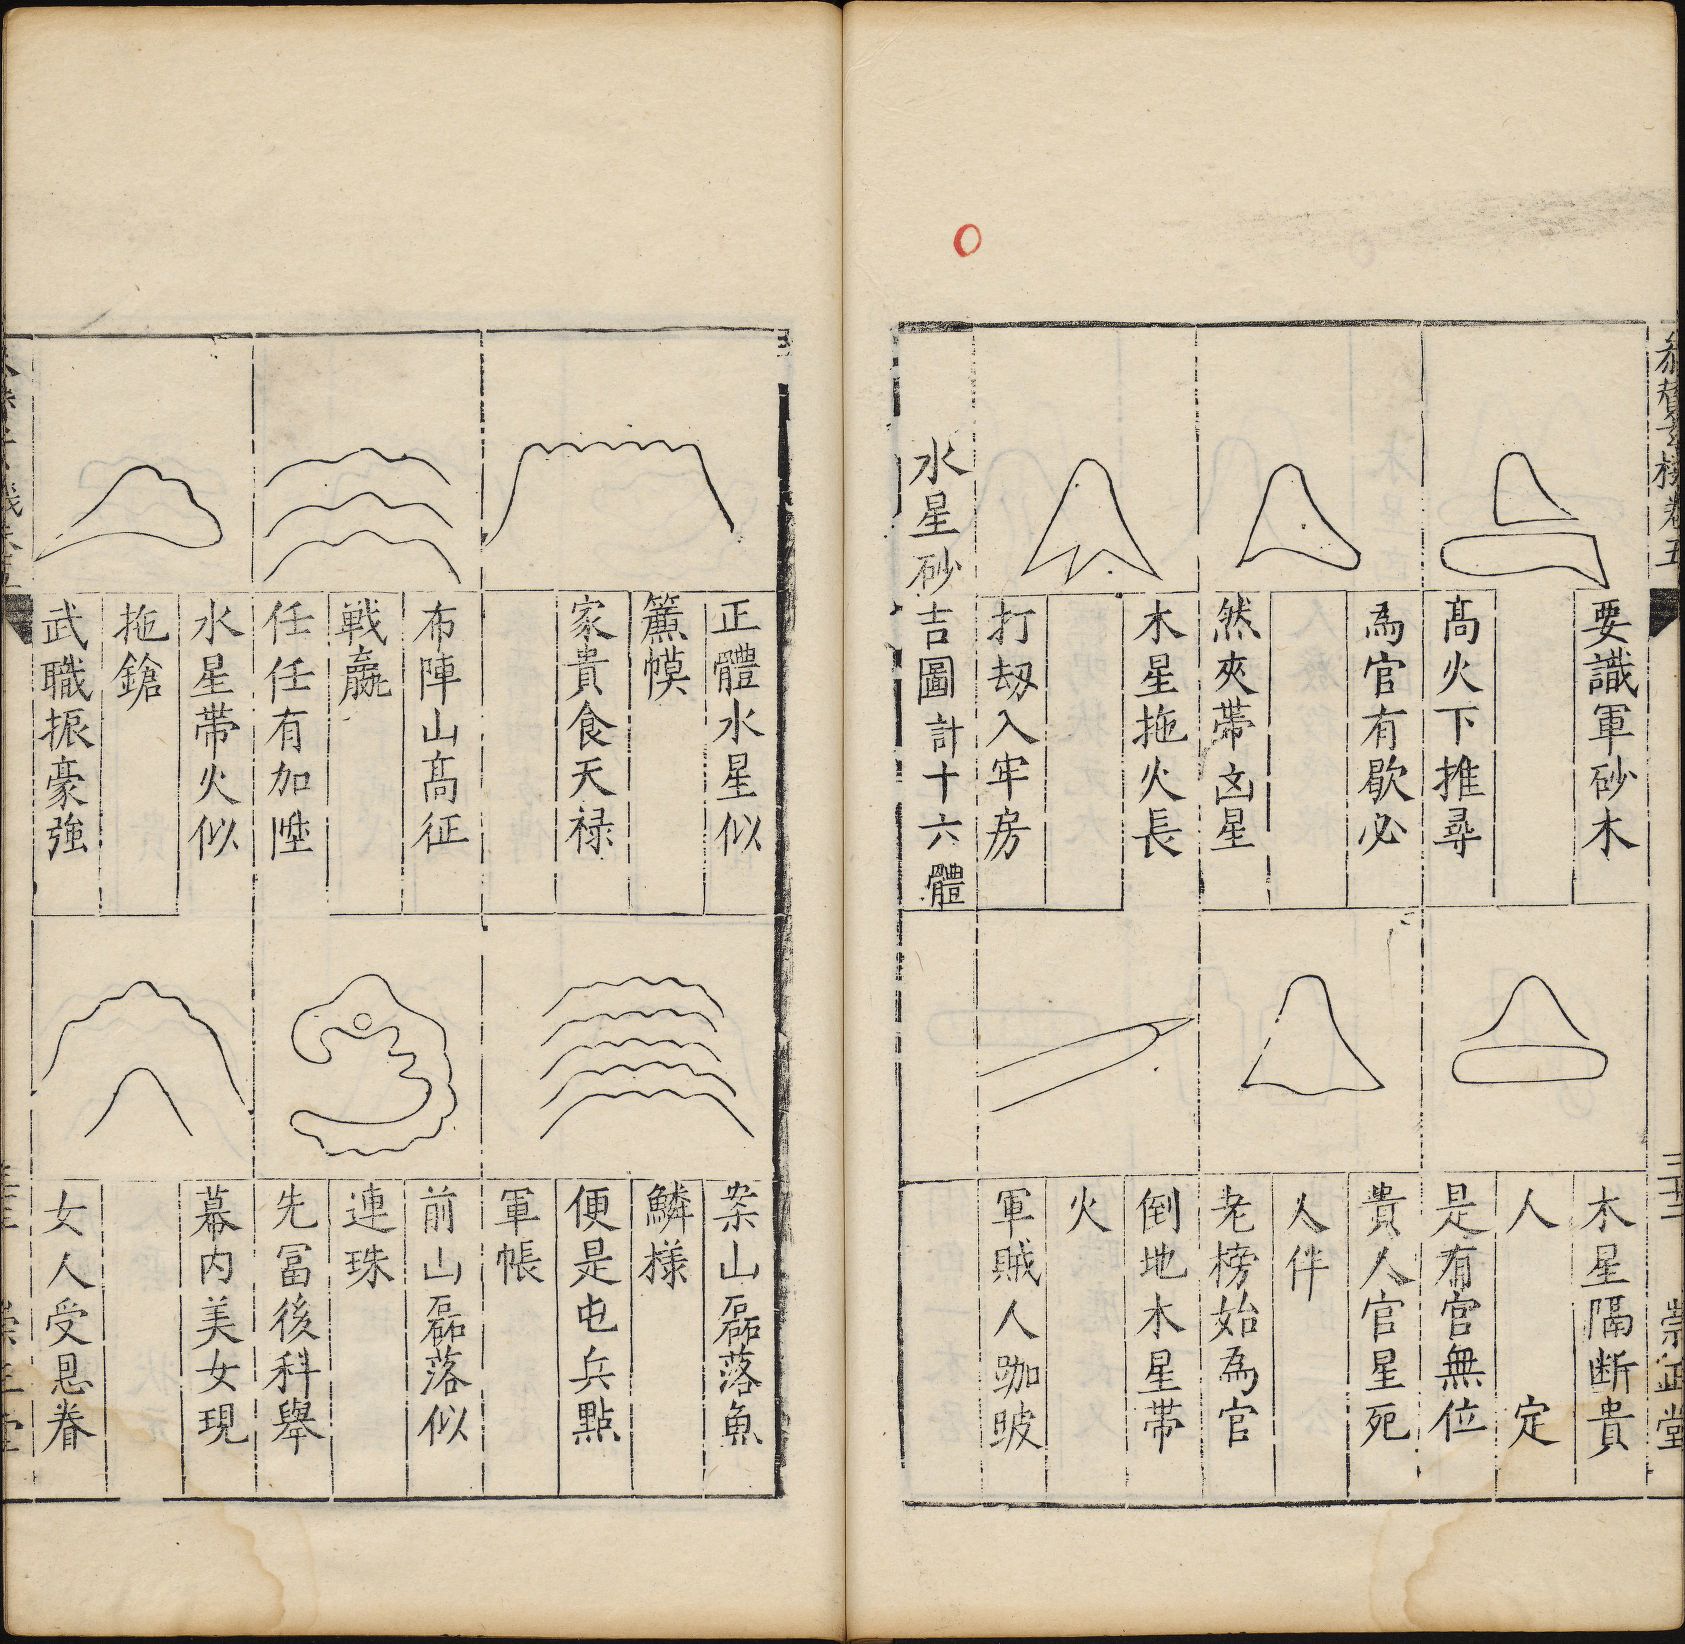 要識軍砂木
髙火下推尋
為官有歇必
然夾帶凶星
木星拖火長
打刼入牢房
木星隔断貴
人　　　定
是有官無位
貴人官星死
人伴
老榜始為官
倒地木星帶
火
軍賊人跏跛
水星砂吉圖計十六體
正體水星似
簾幙
家貴食天禄
布陣山髙征
戦贏
任任有加陞
水星帶火似
拖鎗
武職振豪強
案山磊落魚
鱗様
便是屯兵點
軍帳
前山磊落似
連珠
先冨後科舉
幕内美女現
女人受恩眷
崇正堂